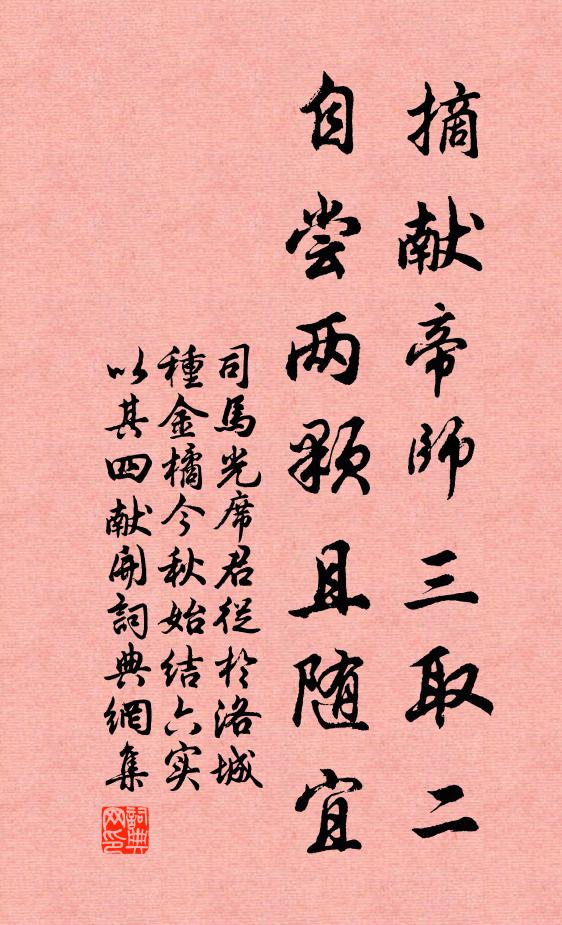 摘献帝师三取二
自尝两颗且随宜
司馬光席君従於洛城
種金橘今秋始结六实
以其四献開詞典網集
詞典网印